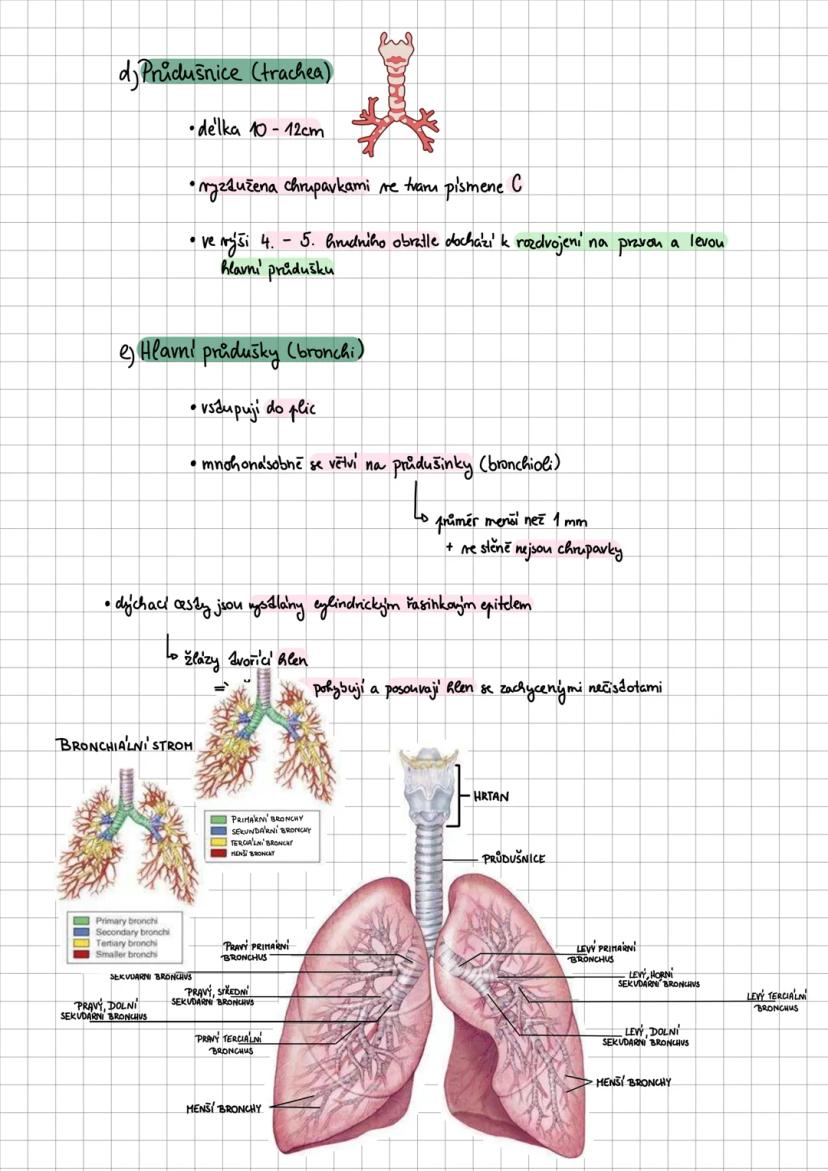 d) Průdušnice (trachea)
• délka 10 - 12cm
• vyztužena chrupavkami ve tvaru písmene C
• ve výši 4. - 5. hrudního obratle dochází k rozdvojení na pravou a levou
hlavní průdušku
e) Hlavní průdušky (bronchi)
• vstupují do plic
• mnohonásobně se větví na průdušinky (bronchioli)
průměr menší než 1 mm
+ ve stěně nejsou chrupavky
• dýchací cesty jsou vystlány cylindrickým řasinkovým epitelem
žlázy tvořící hlen
=> pohybují a posouvají hlen se zachycenými nečistotami
BRONCHIÁLNÍ STROM
PRIMÁRNÍ BRONCHY
SEKUNDÁRNÍ BRONCHY
TERCIÁLNÍ BRONCHY
MENŠÍ BRONCHY
Primary bronchi
Secondary bronchi
Tertiary bronchi
Smaller bronchi
HRTAN
PRŮDUŠNICE
PRAVÝ PRIMÁRNÍ
BRONCHUS
SEKUDÁRNÍ BRONCHUS
PRAVÝ, STŘEDNÍ
SEKUDÁRNÍ BRONCHUS
PRAVÝ, DOLNÍ
SEKUDÁRNÍ BRONCHUS
PRAVÝ TERCIÁLNÍ
BRONCHUS
MENŠÍ BRONCHY
LEVÝ PRIMÁRNÍ
BRONCHUS
LEVÝ, HORNÍ
SEKUDÁRNÍ BRONCHUS
LEVÝ TERCIÁLNÍ
BRONCHUS
LEVÝ, DOLNÍ
SEKUDÁRNÍ BRONCHUS
MENŠÍ BRONCHY